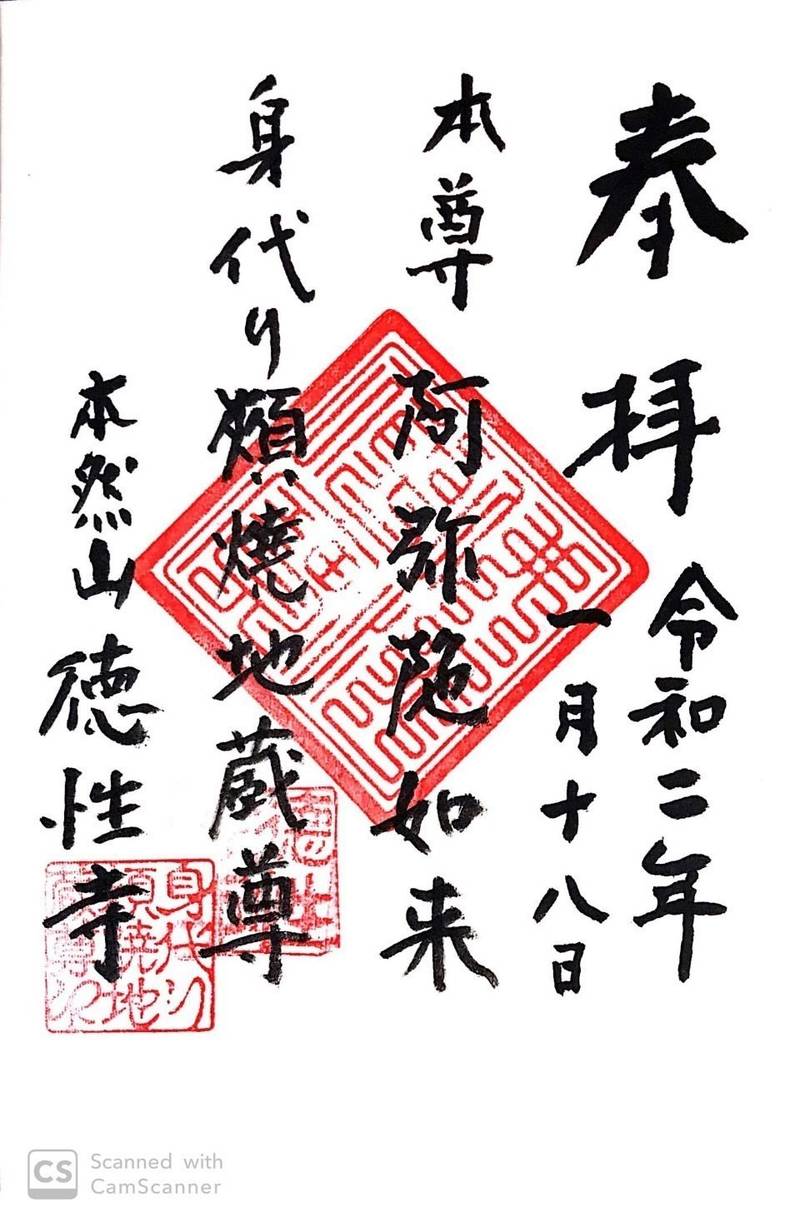 奉拝
令和二年
一月十八日
本尊 阿弥陀如来
身代り頬燒地蔵尊
本然山徳性寺
身代り
頬焼地
CS Scanned with
CamScanner